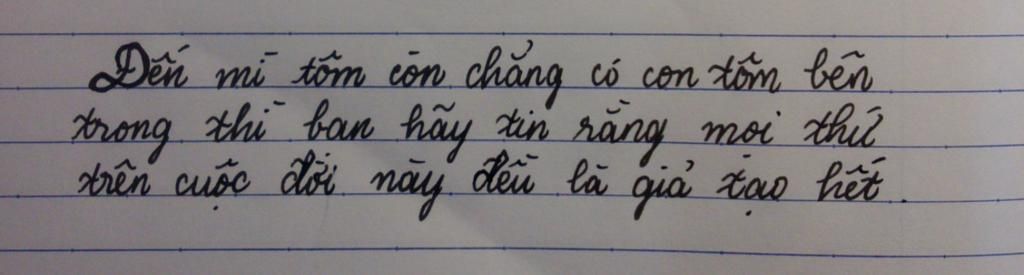 Đến mì tôm còn chẳng có con tôm bên
trong thì bạn hãy tin rằng mọi thứ
trên cuộc đời này đều là giả tạo hết.